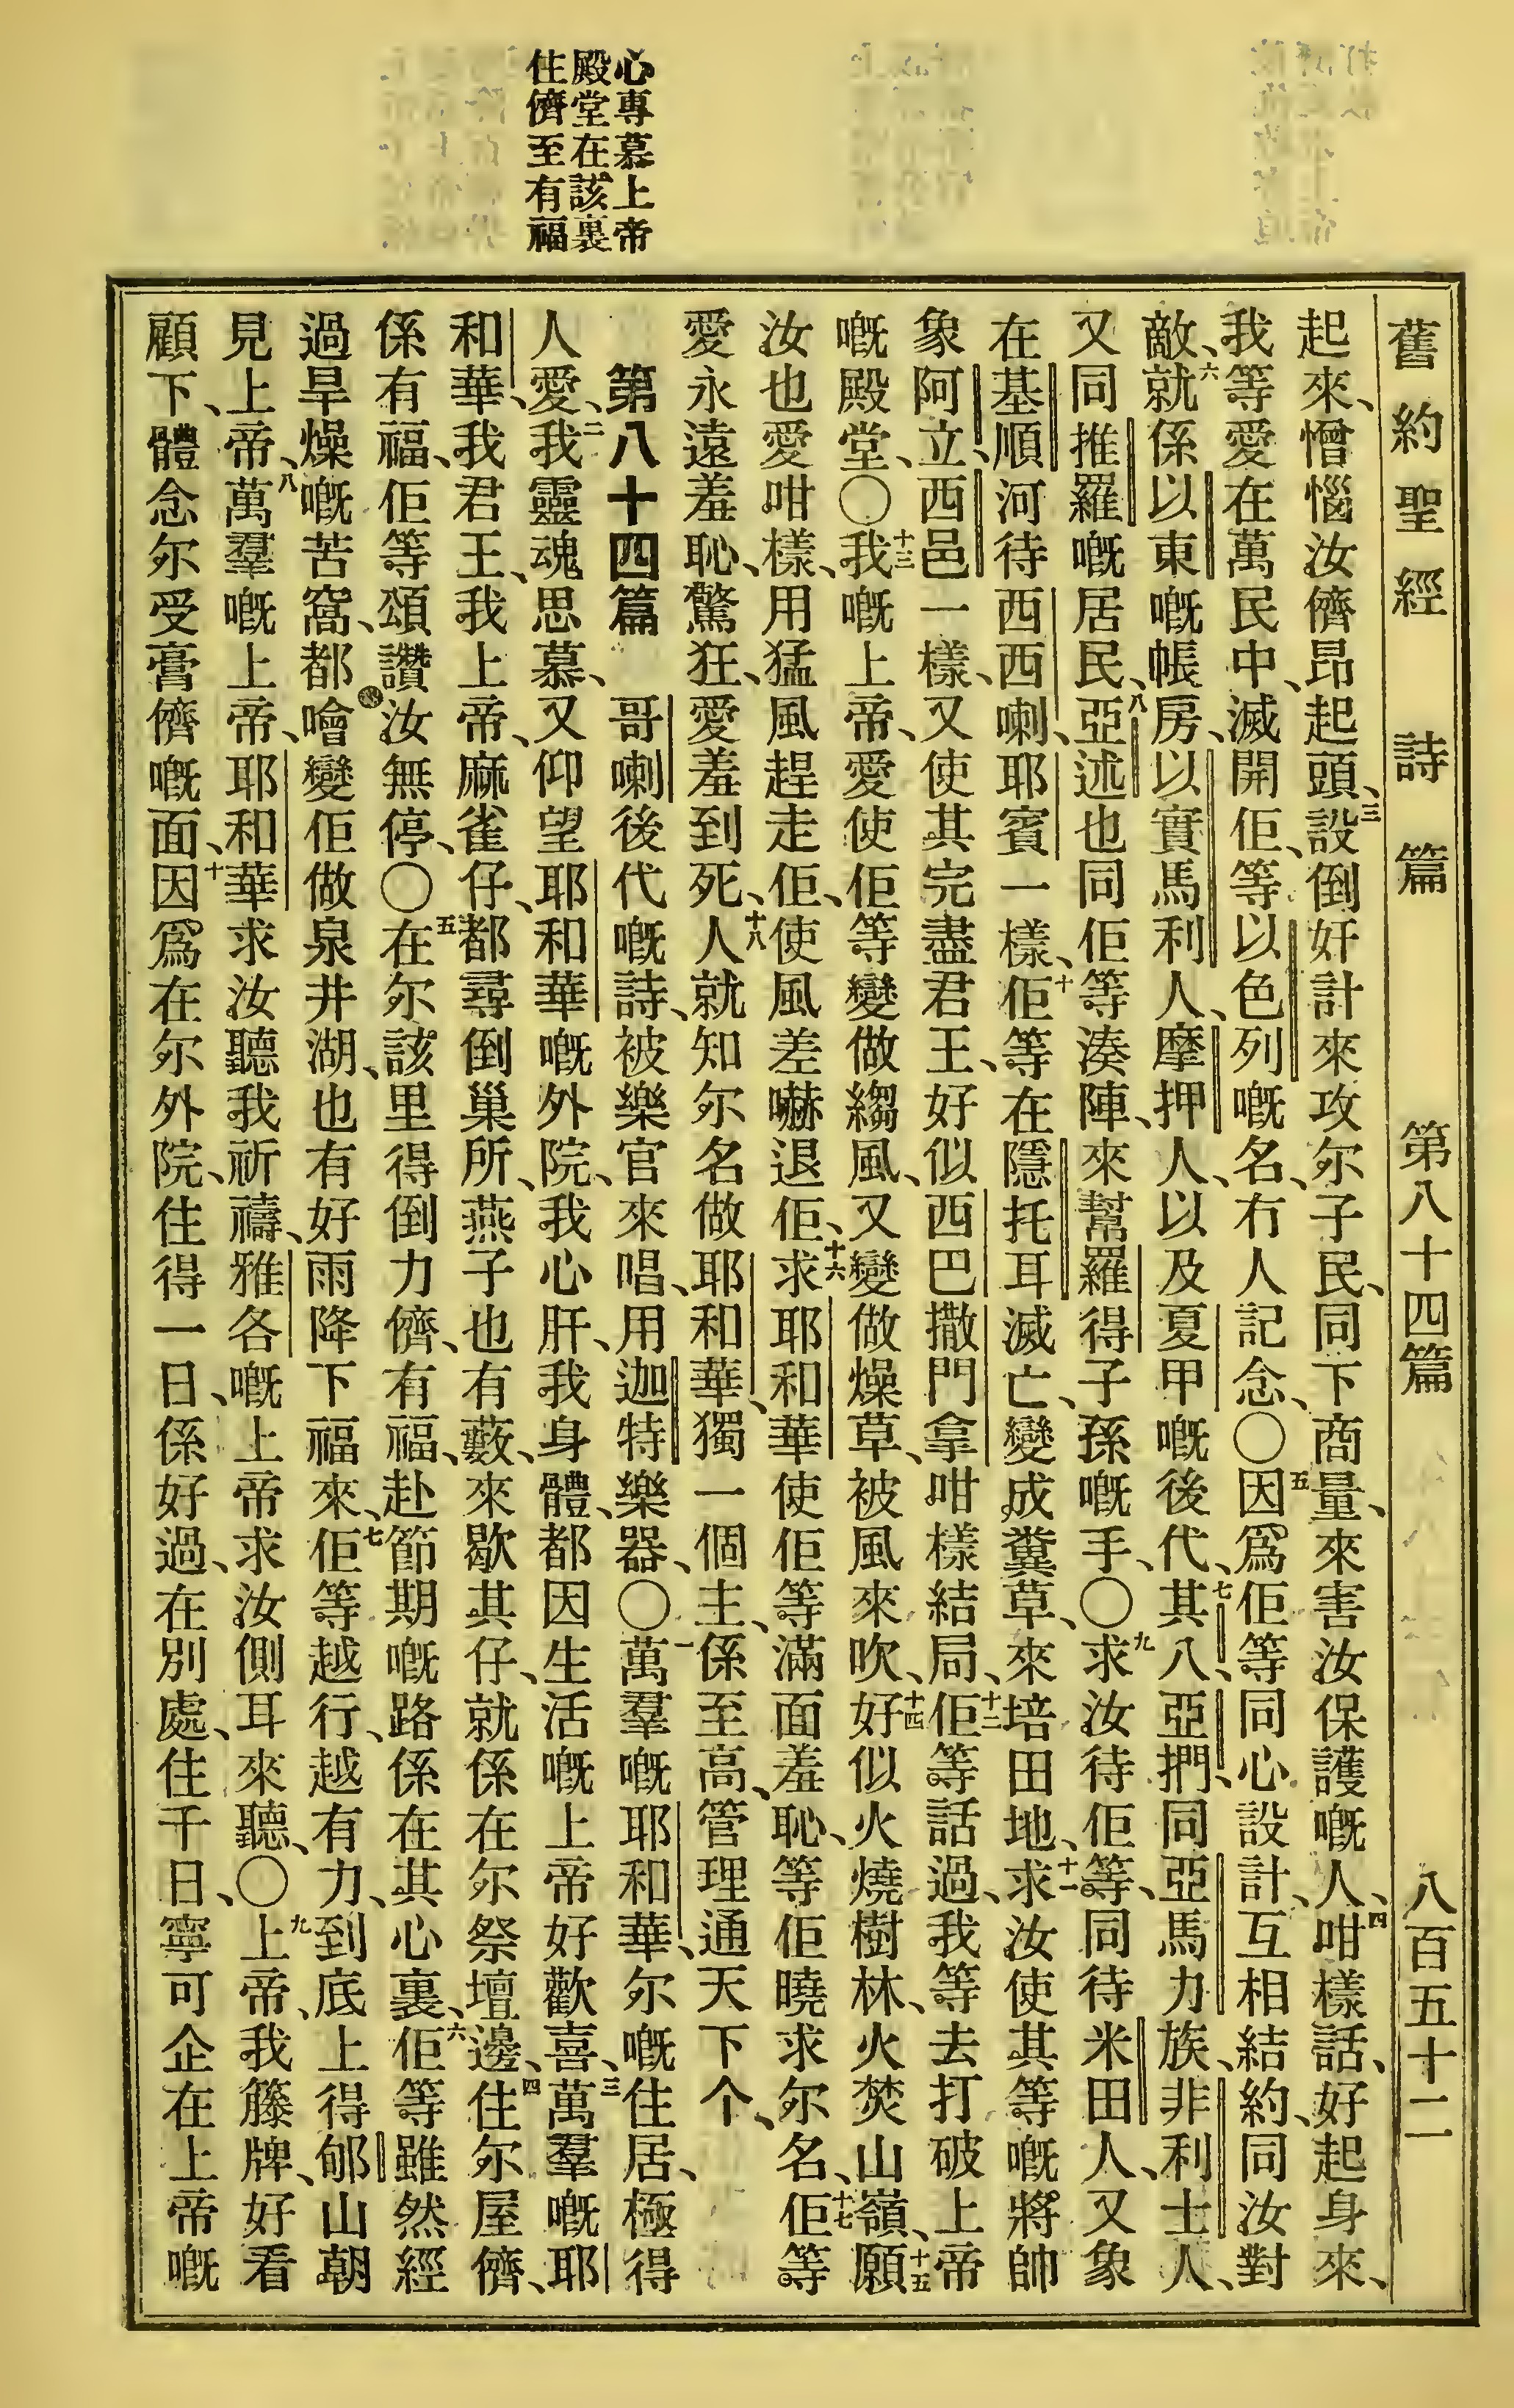 心專慕上帝
殿堂在該裏
住儕至有福
舊約聖經 詩篇 第八十四篇 八百五十二
起來、憎惱汝儕昂起頭、三設倒奸計來攻尔子民、同下商量、來害汝保護嘅人、四咁樣話、好起身來、
我等愛在萬民中、滅開佢等、以色列嘅名、冇人記念、〇五因爲佢等同心設計、互相結約、同汝對
敵、六就係以東嘅帳房、以實馬利人、摩押人、以及夏甲嘅後代、七其八、亞捫、同亞馬力族、非利士人、
又同推羅嘅居民、八亞述也同佢等湊陣、來幫羅得子孫嘅手、〇九求汝待佢等、同待米田人、又象
在基順河待西西喇、耶賓一樣、十佢等在隱托耳滅亡、變成糞草、來培田地、十一求汝使其等嘅將帥
象阿立、西邑一樣、又使其完盡君王、好似西巴撒門拿咁樣結局、十二佢等話過、我等去打破上帝
嘅殿堂、〇十三我嘅上帝、愛使佢等變做縐風、又變做燥草、被風來吹、十四好似火燒樹林、火焚山嶺、十五願
汝也愛咁樣、用猛風趕走佢、使風差嚇退佢、十六求耶和華使佢等滿面羞恥、等佢曉求尔名、十七佢等
愛永遠羞恥、驚狂、愛羞到死、十八人就知尔名做耶和華、獨一個主、係至高、管理通天下个、
第八十四篇 哥喇後代嘅詩、被樂官來唱、用迦特樂器、〇一萬羣嘅耶和華、尔嘅住居、極得
人愛、二我靈魂思慕、又仰望耶和華嘅外院、我心肝、我身體、都因生活嘅上帝好歡喜、三萬羣嘅耶
和華、我君王、我上帝、麻雀仔、都尋倒巢所、燕子也有藪、來歇其仔、就係在尔祭壇邊、四住尔屋儕、
係有福、佢等頌讚汝無停、〇五在尔該里得倒力儕、有福、赴節期嘅路係在其心裏、六佢等雖然經
過旱燥嘅苦窩、都噲變佢做泉井湖、也有好雨降下福來、七佢等越行、越有力、到底上得郇山朝
見上帝、八萬羣嘅上帝、耶和華求汝聽我祈禱、雅各嘅上帝求汝側耳來聽、〇九上帝、我籐牌、好看
顧下、體念尔受膏儕嘅面、十因爲在尔外院、住得一日、係好過、在別處、住千日、寧可企在上帝嘅